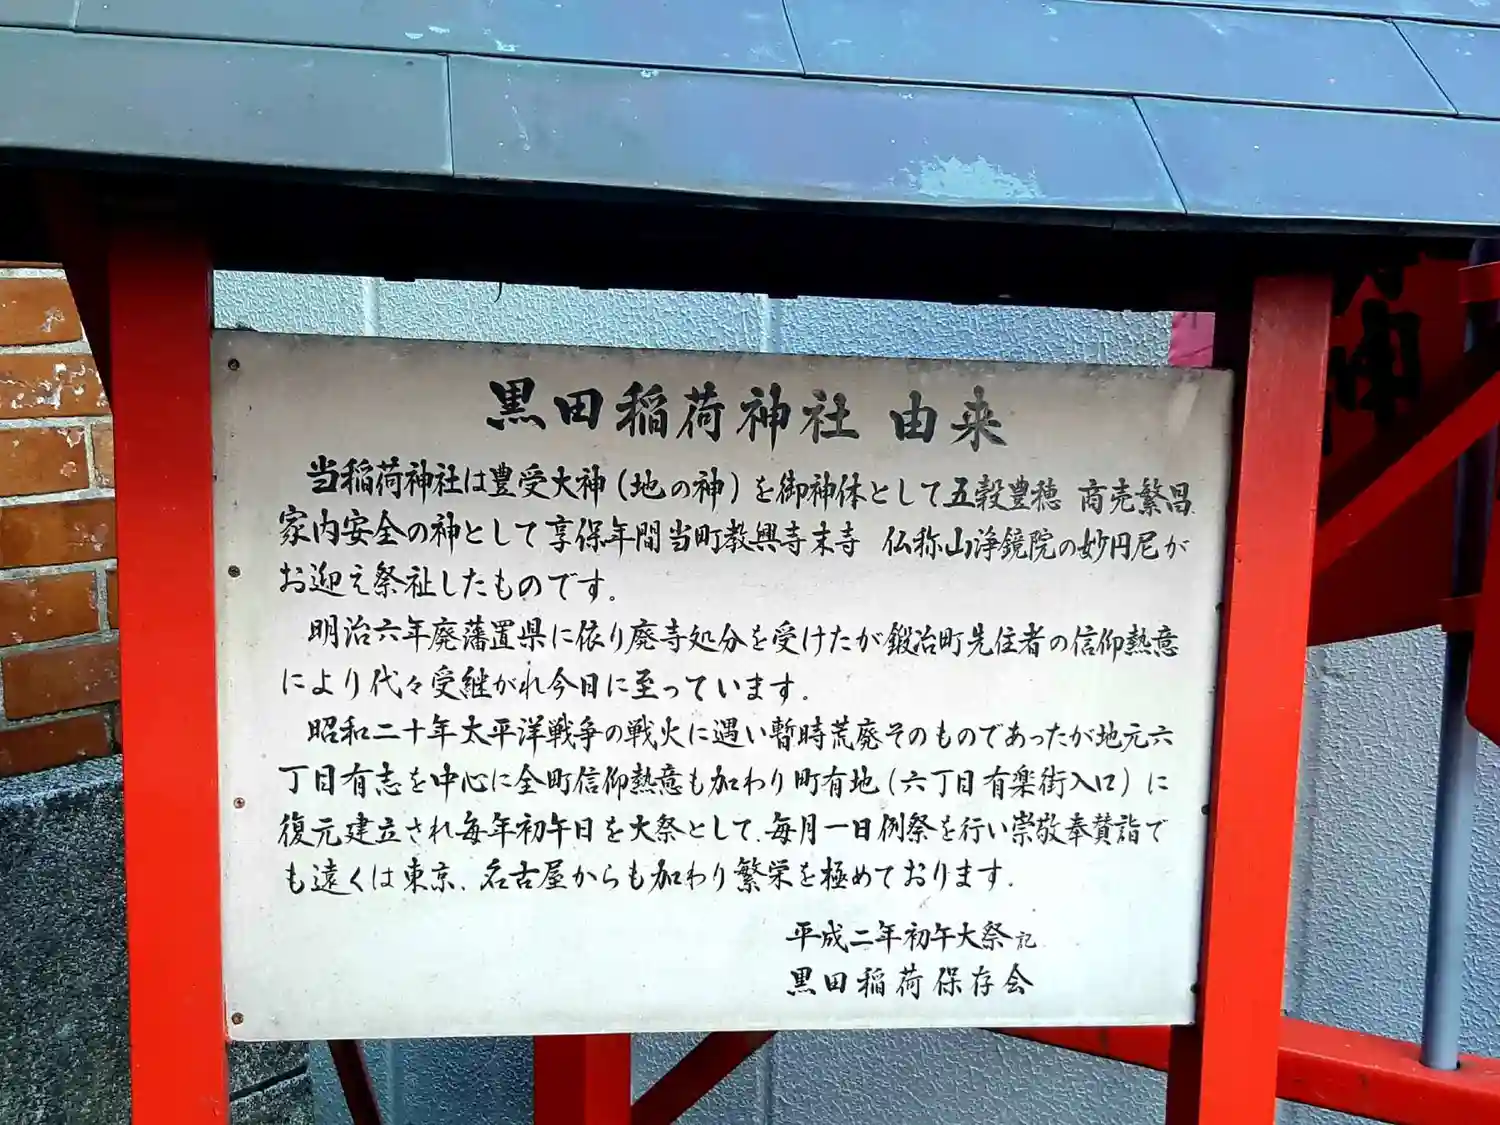 黒田稲荷神社 由来
当稲荷神社は豊受大神(地の神)を御神体として五穀豊穂 商売繁昌.
家内安全の神として享保年間当町教興寺末寺 仏称山浄鏡院の妙円尼が
お迎え祭祉したものです。
明治六年廃藩置県に依り廃寺処分を受けたが鍛冶町先住者の信仰熱意
により代々受継がれ今日に至っています.
昭和二十年太平洋戦争の戦火に遇い暫時荒廃そのものであったが地元六
丁目有志を中心に全町信仰熱意も加わり町有地(六丁目有楽街入口)に
復元建立され毎年初午日を大祭として.毎月一日例祭を行い崇敬奉賛詣で
も遠くは東京.名古屋からも加わり繁栄を極めております.
平成二年初午大祭記
黒田稲荷保存会
神